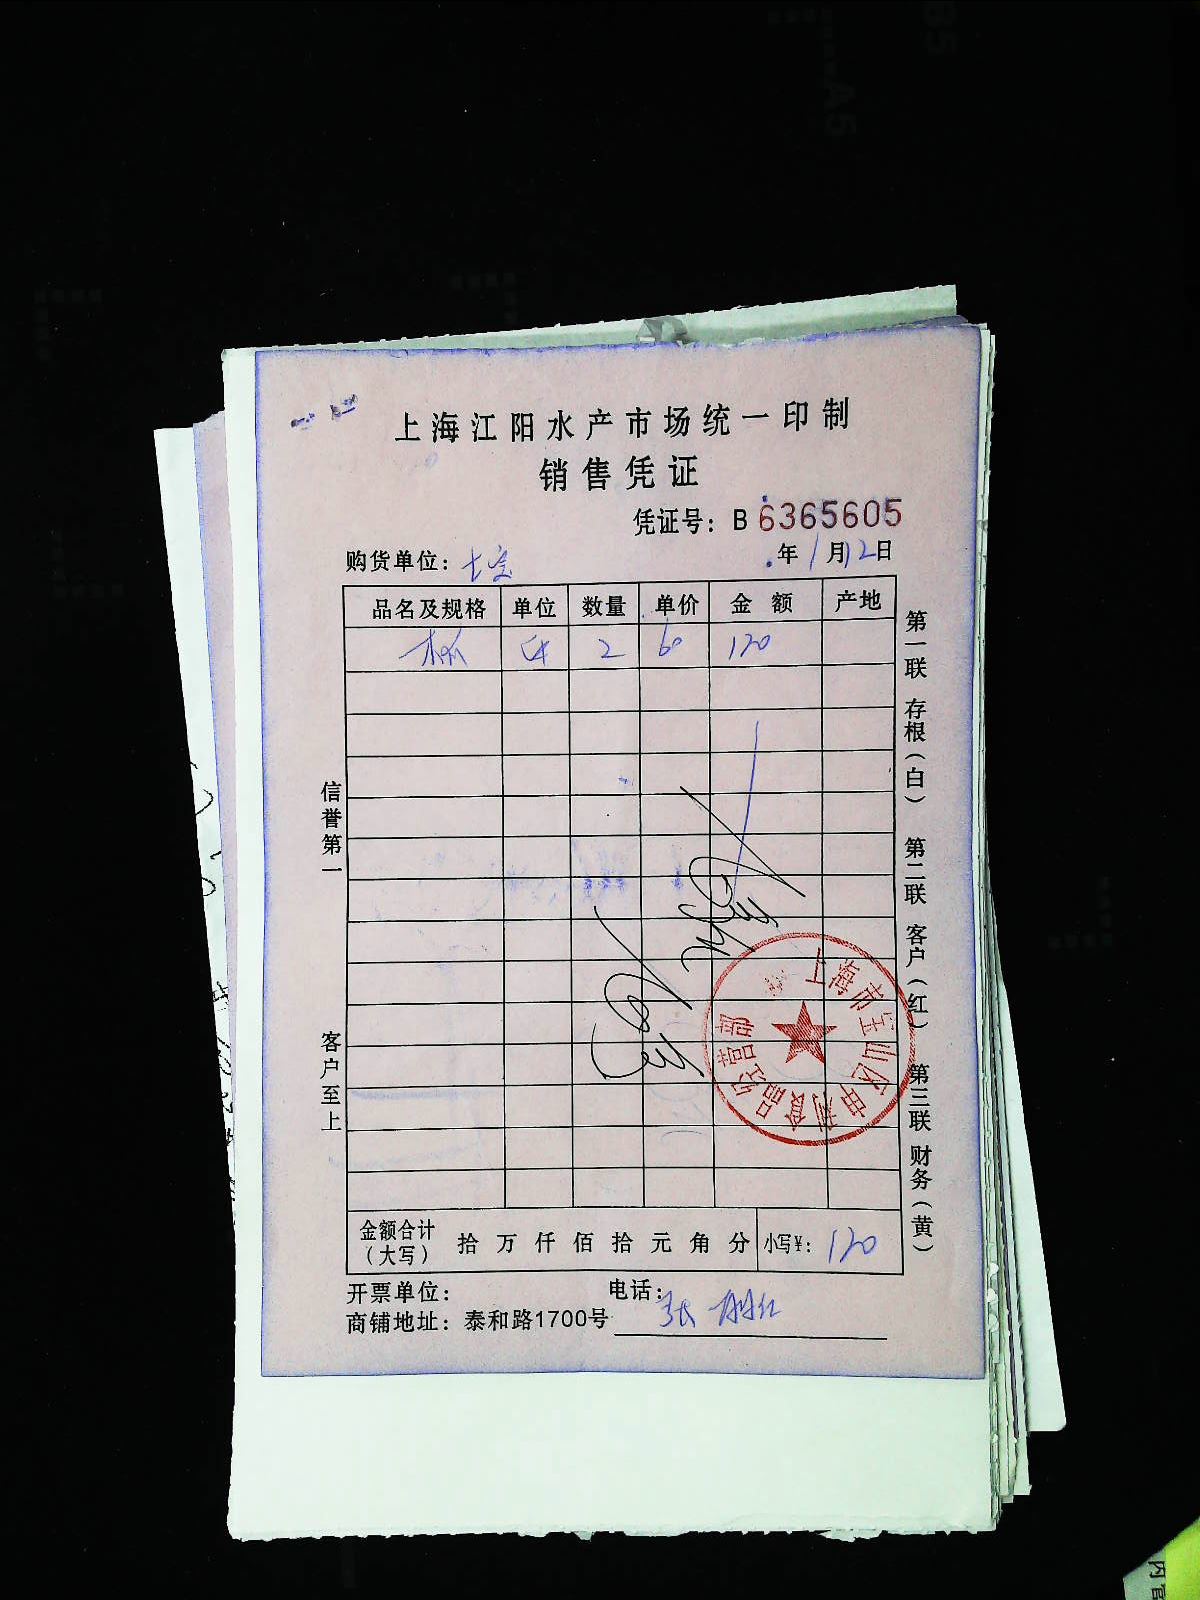 上海江阳水产市场统一印制
销售凭证
凭证号：B 6365605
购货单位： 年1月12日
品名及规格 单位 数量 单价 金额 产地
2 60 120
信誉第一
客户至上
第一联 存根（白） 第二联 客户（红） 第三联 财务（黄）
上海市宝山区申利食品经营部
金额合计（大写） 拾 万 仟 佰 拾 元 角 分 小写¥：120
开票单位： 电话：
商铺地址：泰和路1700号